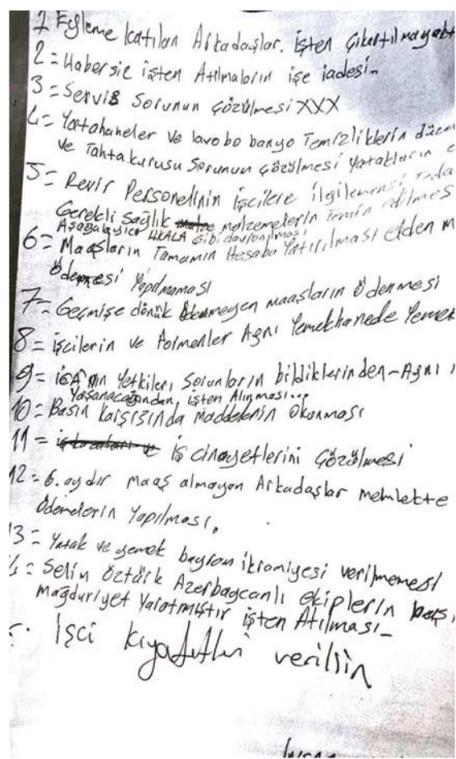 1 Eyleme katılan Arkadaşlar. işten çıkartılmayak
2= Habersiz işten Atılmaların işe iadesi-
3= Servis Sorunun çözülmesi XXX
4= Yatahaneler ve lavobo banyo Temizliklerin düzen
ve Tahtakurusu Sorunun çözülmesi yatakların
5= Revir Personelinin işcilere ilgilenmesi
Gerekli Sağlık melzemelerin Temin edilmes
Aşağalayıcı HKALA Gibi davranılması
6= Maaşların Tamamın Hesaba Yatırılması elden m
Ödemesi Yapılmaması
7= Geçmişe dönük ödenmeyen maaşların Ödenmesi
8= işcilerin ve Formenler Aynı Yemekhanede Yemek
9= iGA'nın Yetkileri Sorunların bildiklerinden-Aynı
Yaşanacağından, işten Alınması...
10= Basın karşısında maddelerin Okunması
11= iş cinayetlerini çözülmesi
12= 6. aydır maaş almayan Arkadaşlar memlekte
Ödemelerin Yapılması.
13= Yatak ve yemek bayram ikramiyesi verilmemesi
4= Selin Öztürk Azerbaycanlı ekiplerin
mağduriyet Yaratmıştır işten Atılması-
İşci kıyafetleri verilsin